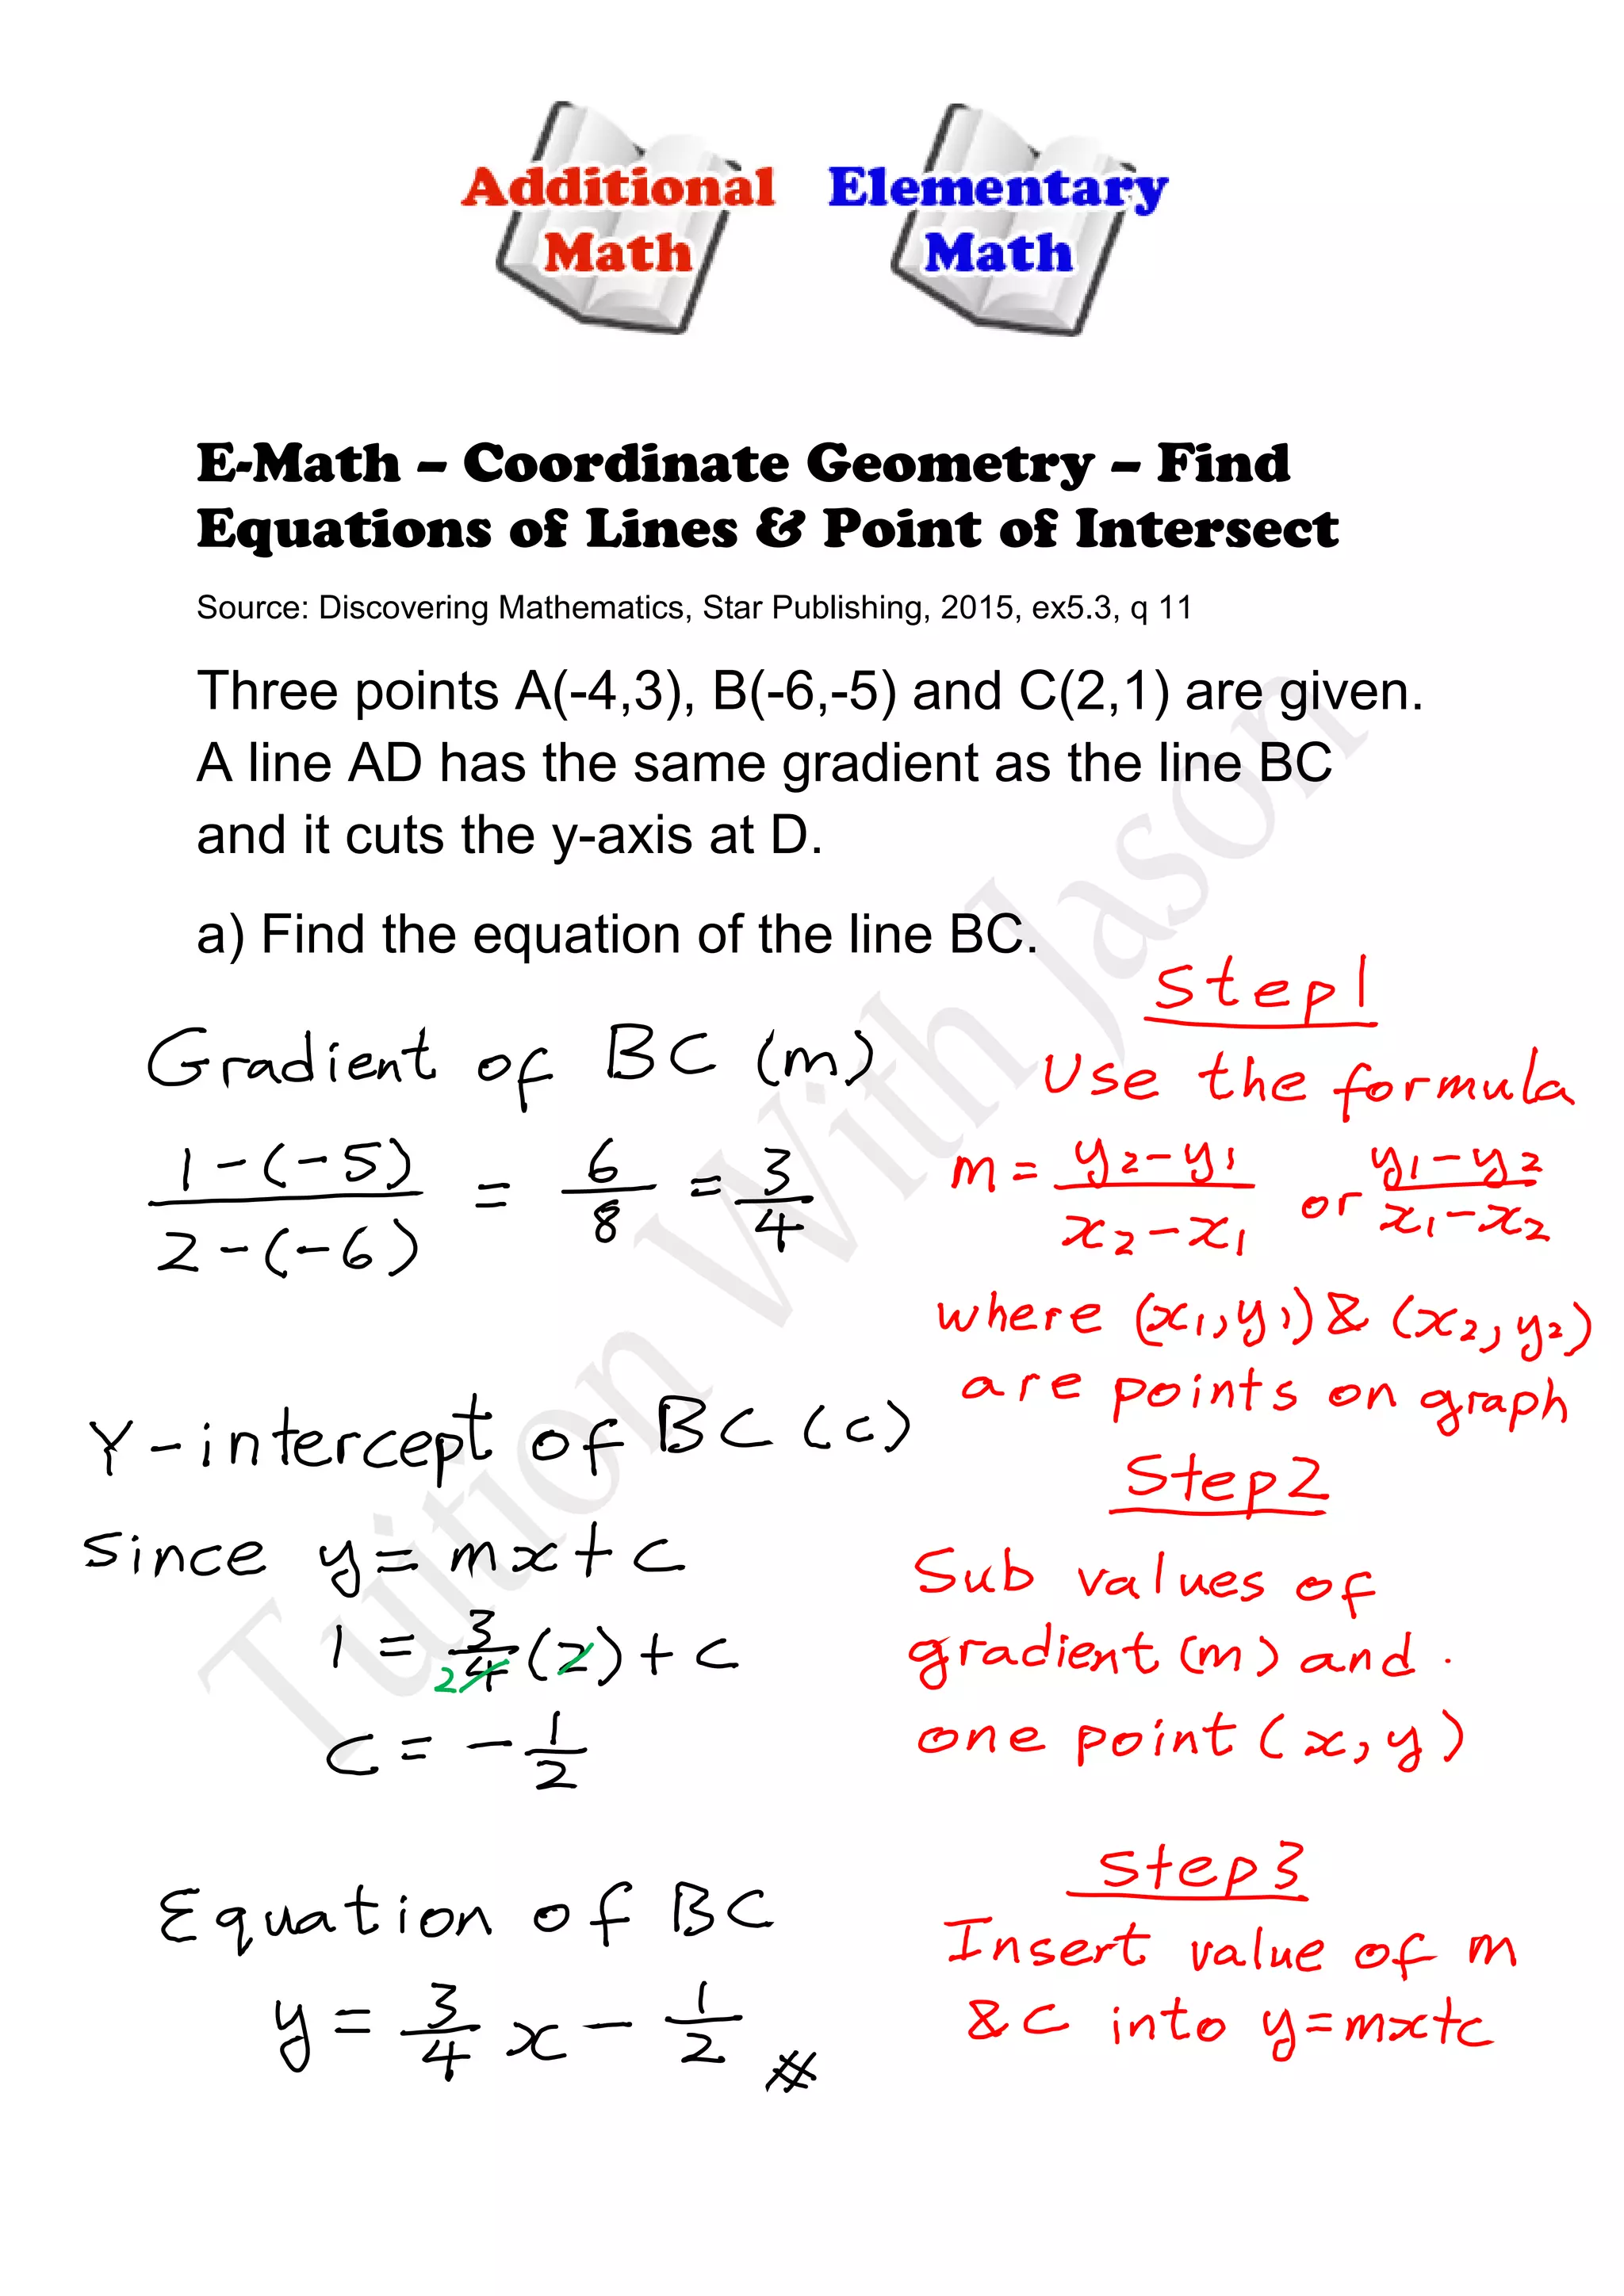 Additional Math
Elementary Math
E-Math – Coordinate Geometry – Find
Equations of Lines & Point of Intersect
Source: Discovering Mathematics, Star Publishing, 2015, ex5.3, q 11
Three points A(-4,3), B(-6,-5) and C(2,1) are given.
A line AD has the same gradient as the line BC
and it cuts the y-axis at D.
a) Find the equation of the line BC.
Gradient of BC (m)
1-(-5)/2-(-6) = 6/8 = 3/4
Step 1
Use the formula
m = y₂-y₁/x₂-x₁ or y₁-y₂/x₁-x₂
where (x₁,y₁) & (x₂,y₂)
are points on graph
Y-intercept of BC (c)
since y = mx + c
1 = 3/4 (2) + c
2
c = - 1/2
Step 2
Sub values of
gradient (m) and
one point (x,y)
Equation of BC
y = 3/4 x - 1/2 #
Step 3
Insert value of m
& C into y=mx+c
Tuition With Jason